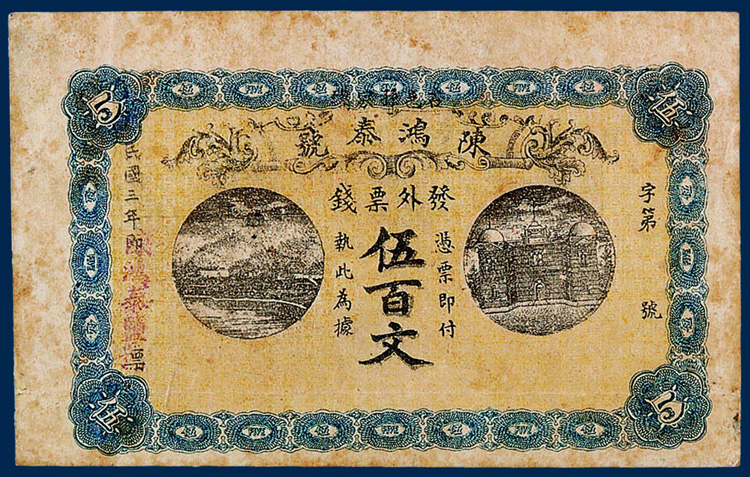 陳鴻泰號
發外票錢
字第 號
憑票即付
伍百文
執此為據
民國三年印
伍
伍
伍
伍